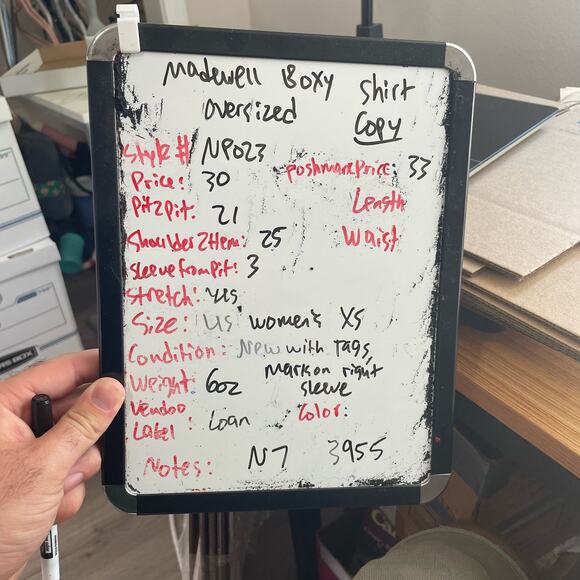 Madewell Boxy Shirt
oversized Copy
Style # NP023
Poshmark Price: 33
Price: 30
Length
Pit2Pit: 21
Waist
Shoulder2Hem: 25
Sleeve from Pit: 3
Stretch: yes
Size: US women's XS
Condition: New with Tags,
Mark on right
sleeve
Weight: 6oz
Color:
Vendoo
Label: Loan
Notes: N7 3955